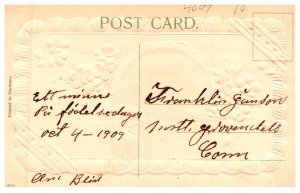 4047 10
POST CARD.
Printed in Germany
Ett minne
På födelsedagen
oct 4 - 1909
Franklin Janson
north grosvenordell
Conn